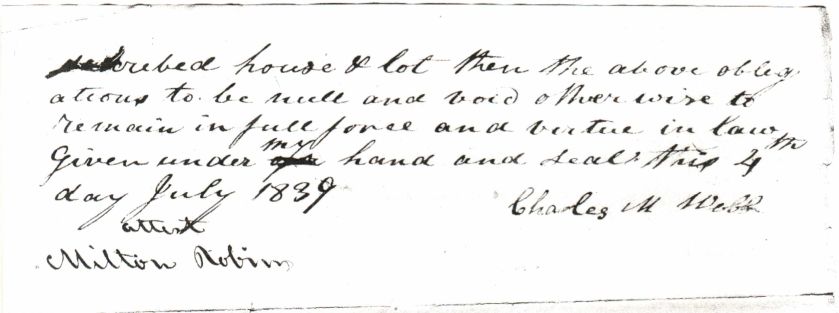 scribed house & lot then the above oblig
ations to be null and void otherwise to
remain in full force and virtue in law
Given under my hand and seal this 4th
day July 1839
Charles M Webb
attest
Milton Robins